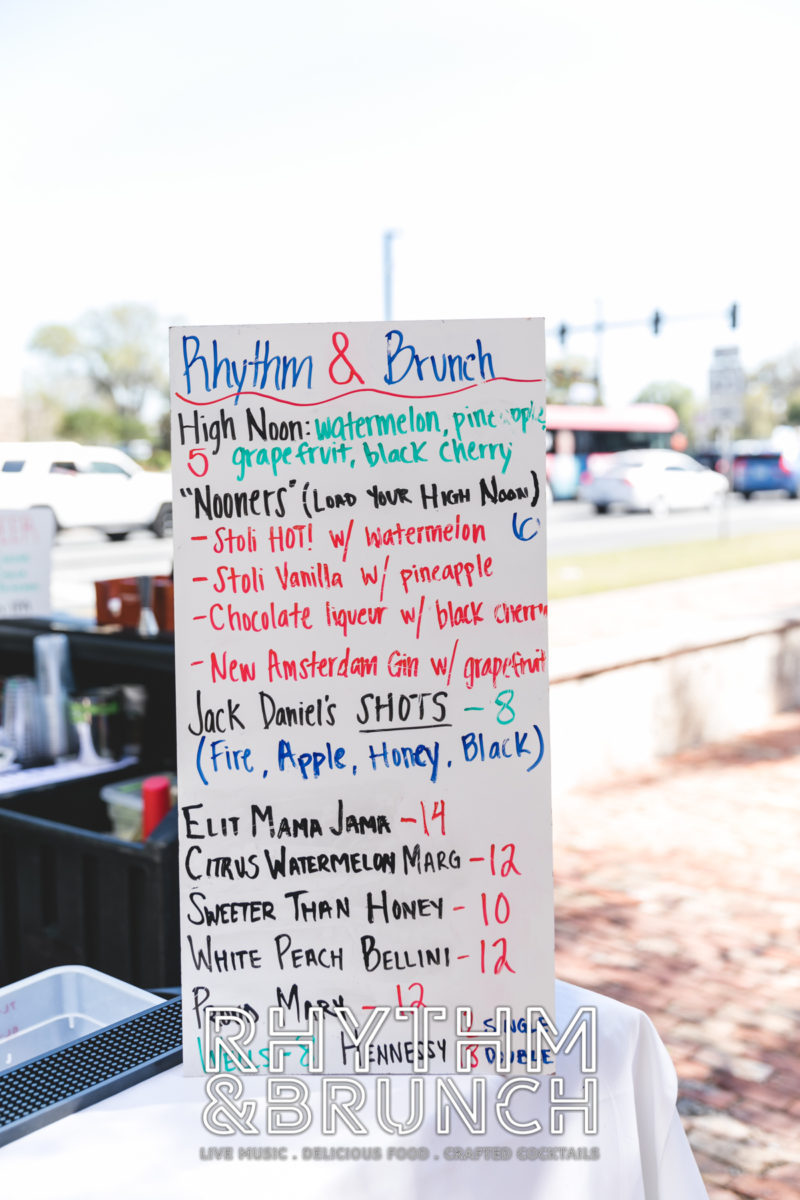 Rhythm & Brunch
High Noon: watermelon, pineapple
5 grapefruit, black cherry
"Nooners" (LOAD YOUR HIGH NOON)
- Stoli HOT! w/ watermelon 6
- Stoli Vanilla w/ pineapple
- Chocolate liqueur w/ black cherry
- New Amsterdam Gin w/ grapefruit
Jack Daniel's SHOTS - 8
(Fire, Apple, Honey, Black)
ELIT MAMA JAMA - 14
CITRUS WATERMELON MARG - 12
SWEETER THAN HONEY - 10
WHITE PEACH BELLINI - 12
PROUD MARY - 12
SINGLE
WELLS - 8 HENNESSY DOUBLE
RHYTHM
&BRUNCH
LIVE MUSIC . DELICIOUS FOOD . CRAFTED COCKTAILS